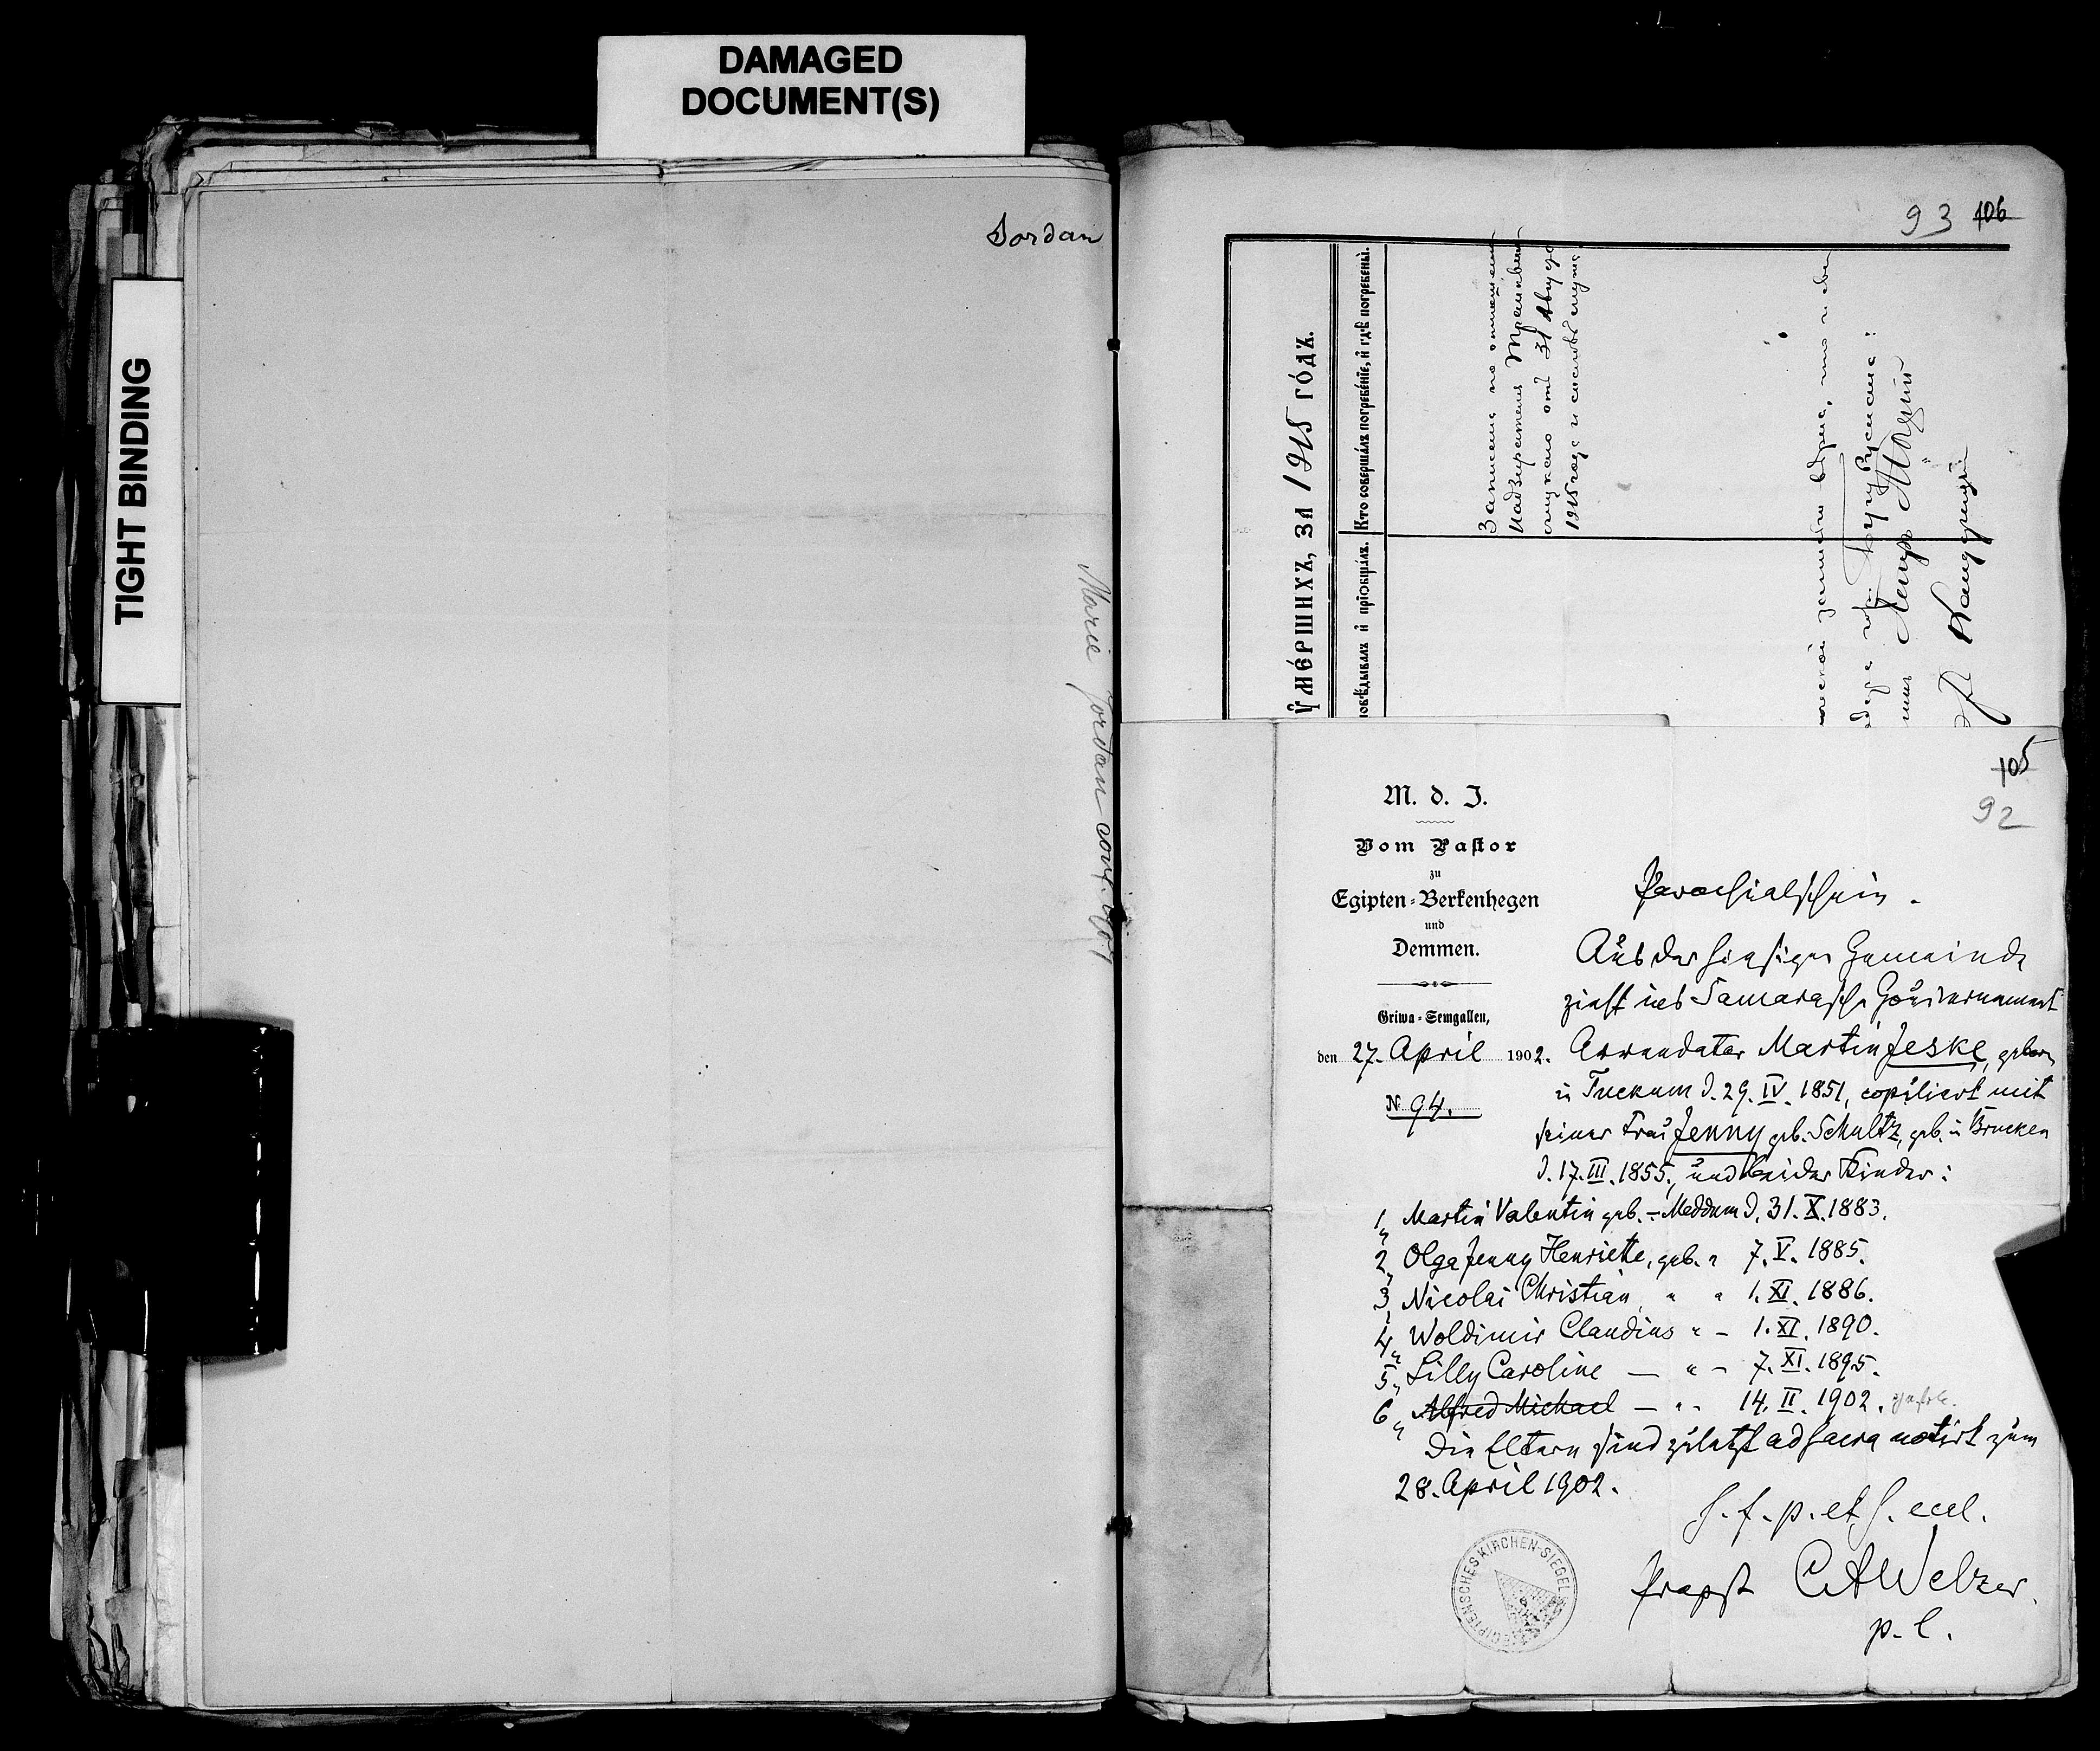 DAMAGED
DOCUMENT(S)
TIGHT BINDING
Jordan
Marie Jordan conf.
93 106
Ꙋ҆мє́ршихъ, за 1915 го́дъ.
Кто соверша́лъ погребе́нїе, и҆ гдѣ̀ погребены̀.
и҆ прїобща́лъ.
Записана по отношению
Надзирателя
от 31 Августа
1915 года и
105
92
M. d. J.
Vom Pastor
zu
Egipten-Berkenhegen
und
Demmen.
Griwa-Semgallen,
den 27. April 1902.
N 94.
Parochialschein.
Aus der hiesigen Gemeinde
zieht ins Samarasche Gouvernement
Arrendator Martin Jeske, geboren
in Tuckum d. 29. IV. 1851, copuliert mit
seiner Frau Jenny geb. Schultz, geb. in Brucken
d. 17. III. 1855, und beider Kinder:
1, Martin Valentin geb. - Meddum d. 31. X. 1883.
2, Olga Jenny Henriette, geb. " 7. V. 1885.
3, Nicolai Christian " " 1. XI. 1886.
4, Woldimir Claudius " - 1. XI. 1890.
5, Lilly Caroline — " - 7. XI. 1895.
6, Alfred Michael — " - 14. II. 1902.
Die Eltern sind zuletzt ad sacra notirt zum
28. April 1902.
S. f. p. et s. eccl.
Propst C A Welzer.
p. l.
EGIPTENSCHES KIRCHEN-SIEGEL